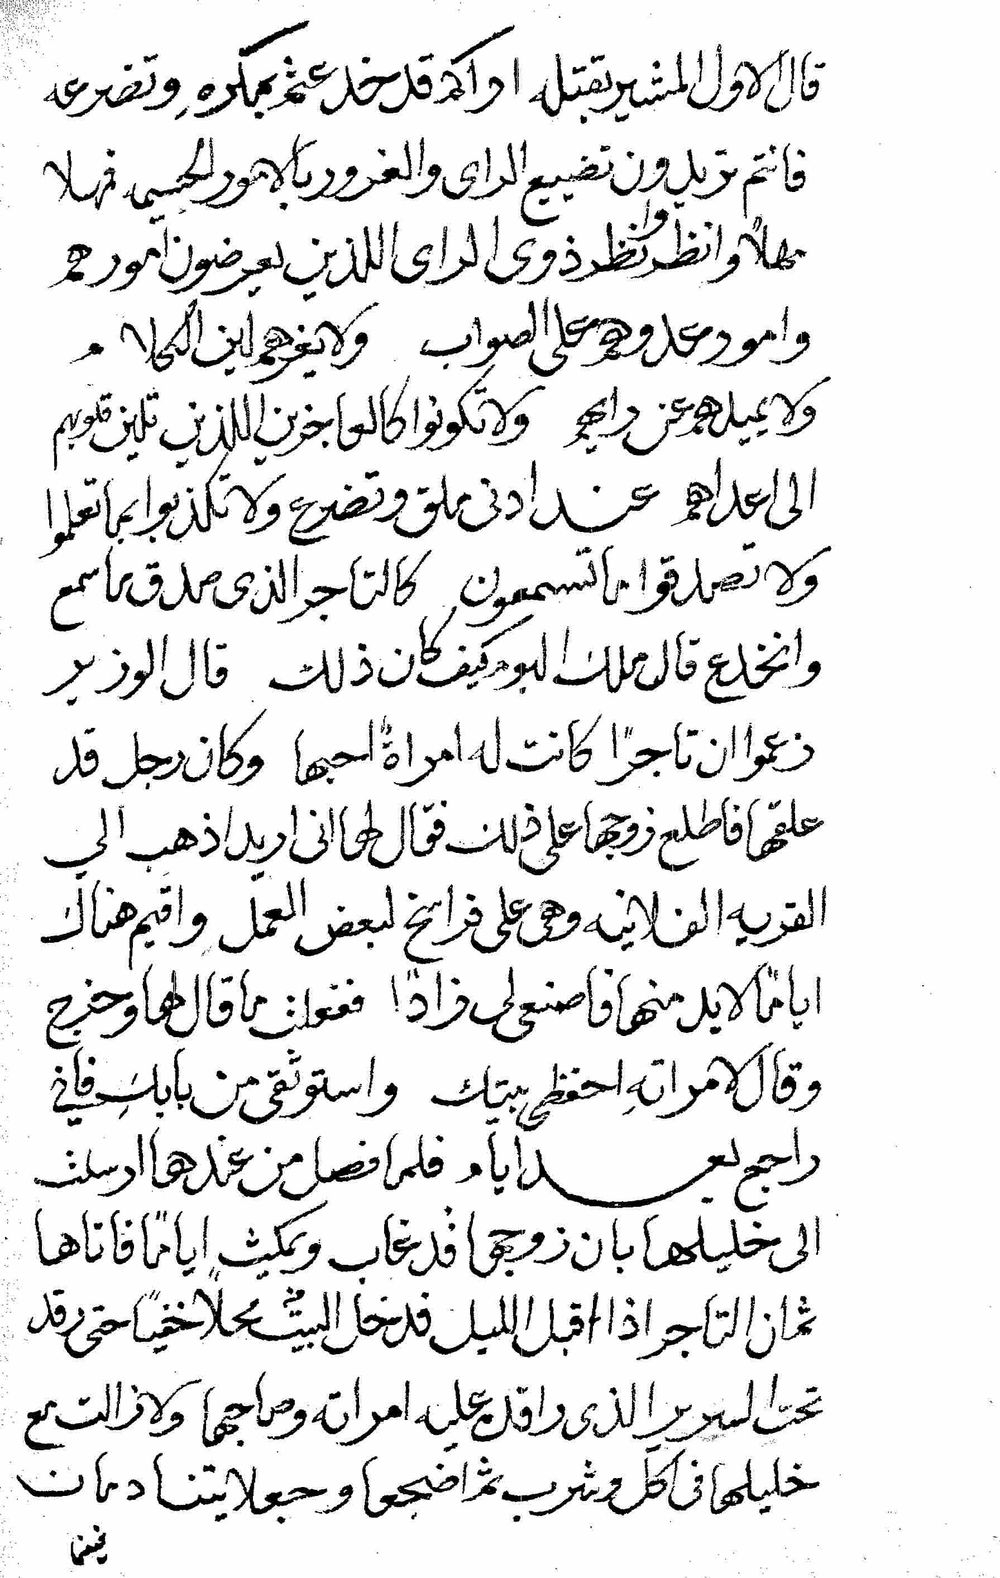 قال الاول المشير بقتله اراكم قد خدعتم بمكره وتضرعه
فانتم تريدون تضييع الراى والغرور بالامور الجسيمه فمهلا
مهلا وانظروا نظر ذوى الراى اللذين يعرضون امورهم
وامور عدوهم على الصواب ولا يغرهم لين الكلام
ولا يميلهم عن رايهم ولا تكونوا كالعاجزين اللذين تلين قلوبهم
الى اعداهم عند ادنى ملق وتضرع ولا تكذبوا بما تعلموا
ولا تصدقوا ما تسمعون كالتاجر الذى صدق ما سمع
وانخدع قال ملك البوم كيف كان ذلك قال الوزير
زعموا ان تاجرًا كانت له امراةً احبها وكان رجل قد
علقها فاطلع زوجها على ذلك فقال لها انى اريد اذهب الي
القريه الفلانيه وهى على فراسخ لبعض العمل واقيم هناك
ايامًا لا بد منها فاصنعى لى زادًا ففعلت ما قال لها وخرج
وقال لامراتهِ احفظى بيتك واستوثقى من بابكِ فانى
راجع بعد ايام فلما فصل من عندها ارسلت
الى خليلها بان زوجها قد غاب ويمكث ايامًا فاتاها
ثم ان التاجر اذا اقبل الليل فدخل البيت محلًا خفيًا حتى رقد
تحت السرير الذى راقده عليه امراته وصاحبها ولا زالت مع
خليلها فى اكل وشرب ثم اضجعا وجعلا يتنادمان